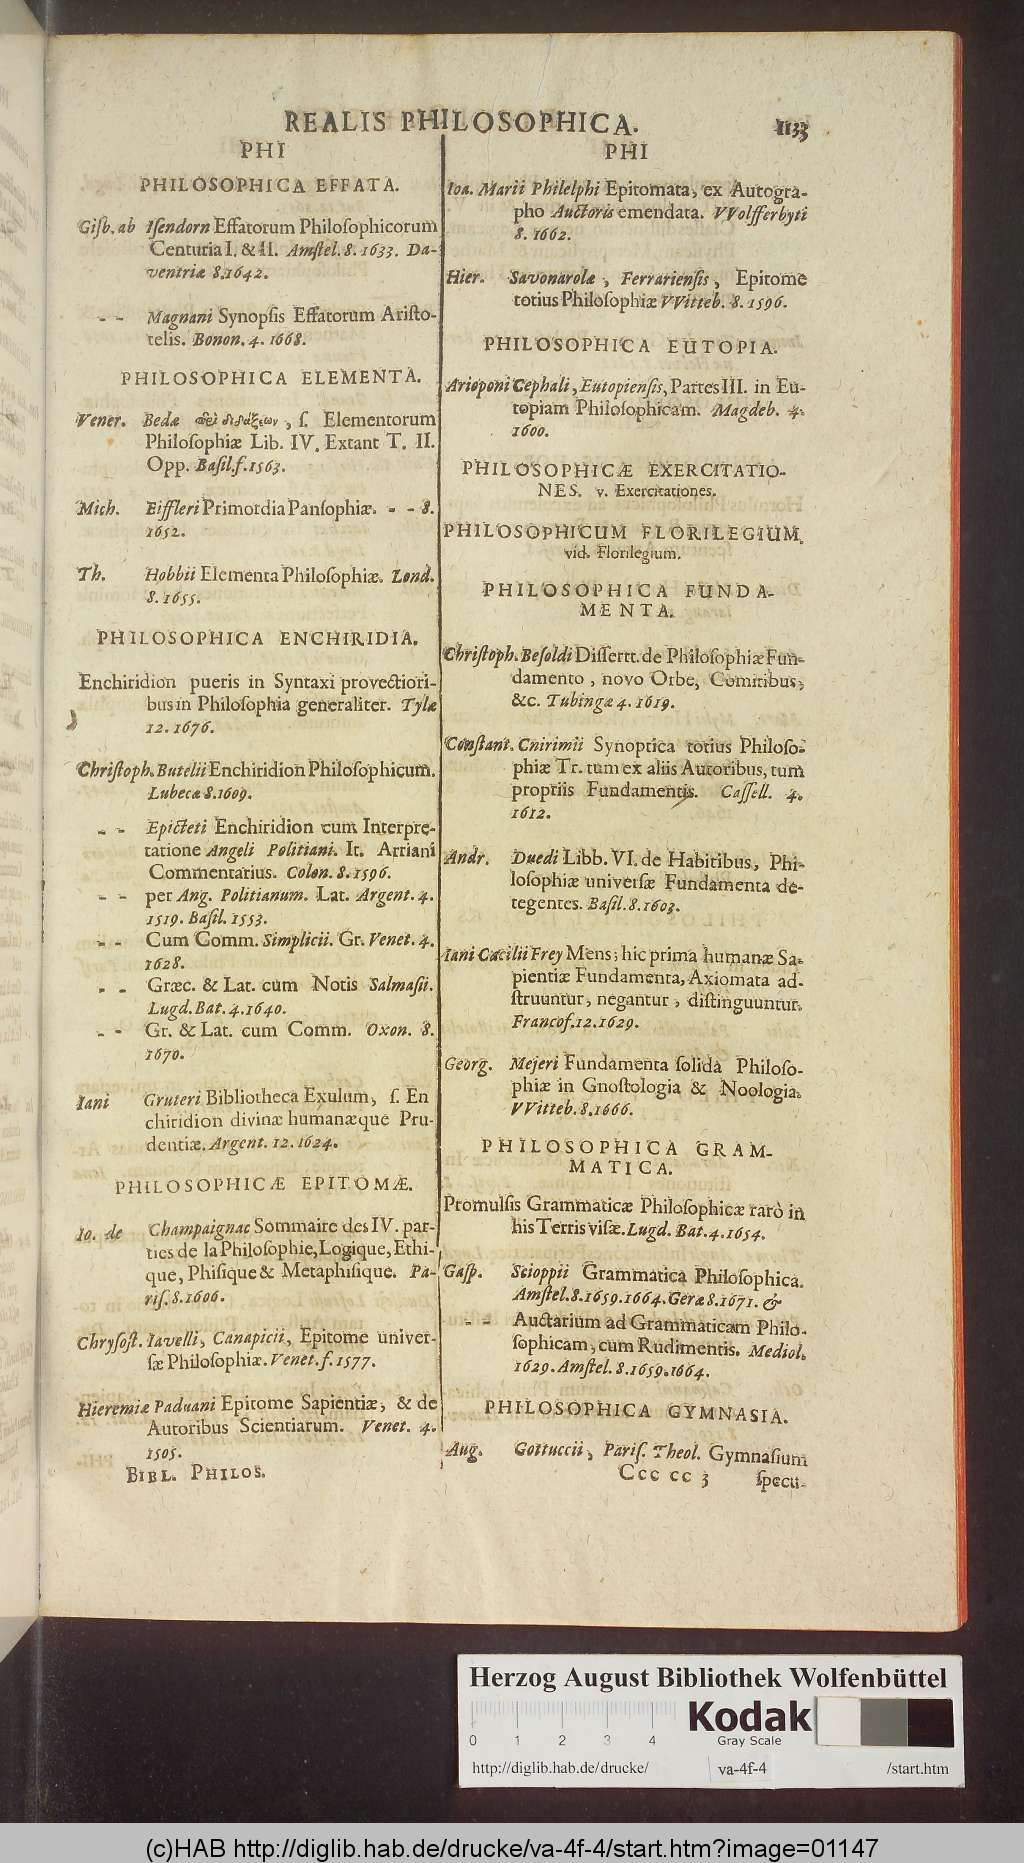 REALIS PHILOSOPHICA.
1133
PHI
PHILOSOPHICA EFFATA.
Giſb. ab Iſendorn Effatorum Philoſophicorum
Centuria I. & II. Amſtel. 8. 1633. Da-
ventriæ 8. 1642.
- - Magnani Synopſis Effatorum Ariſto-
telis. Bonon. 4. 1668.
PHILOSOPHICA ELEMENTA.
Vener. Bedæ διδάξεων, ſ. Elementorum
Philoſophiæ Lib. IV. Extant T. II.
Opp. Baſil. f. 1563.
Mich. Eiffleri Primordia Panſophiæ. - - 8.
1652.
Th. Hobbii Elementa Philoſophiæ. Lond.
8. 1655.
PHILOSOPHICA ENCHIRIDIA.
Enchiridion pueris in Syntaxi provectiori-
bus in Philoſophia generaliter. Tylæ
12. 1676.
Chriſtoph. Butelii Enchiridion Philoſophicum.
Lubecæ 8. 1609.
- - Epicteti Enchiridion cum Interpre-
tatione Angeli Politiani. It. Arriani
Commentarius. Colon. 8. 1596.
- - per Ang. Politianum. Lat. Argent. 4.
1519. Baſil. 1553.
- - Cum Comm. Simplicii. Gr. Venet. 4.
1628.
- - Græc. & Lat. cum Notis Salmaſii.
Lugd. Bat. 4. 1640.
- - Gr. & Lat. cum Comm. Oxon. 8.
1670.
Iani Gruteri Bibliotheca Exulum, ſ. En
chiridion divinæ humanæque Pru-
dentiæ. Argent. 12. 1624.
PHILOSOPHICÆ EPITOMÆ.
Io. de Champaignac Sommaire des IV. par-
ties de la Philoſophie, Logique, Ethi-
que, Phiſique & Metaphiſique. Pa-
riſ. 8. 1606.
Chryſoſt. Iavelli, Canapicii, Epitome univer-
ſæ Philoſophiæ. Venet. f. 1577.
Hieremiæ Paduani Epitome Sapientiæ, & de
Autoribus Scientiarum. Venet. 4.
1505.
BIBL. PHILOS.
PHI
Ioa. Marii Philelphi Epitomata, ex Autogra-
pho Auctoris emendata. VVolfferbyti
8. 1662.
Hier. Savonarolæ, Ferrarienſis, Epitome
totius Philoſophiæ VVitteb. 8. 1596.
PHILOSOPHICA EUTOPIA.
Arioponi Cephali, Eutopienſis, Partes III. in Eu-
topiam Philoſophicam. Magdeb. 4.
1600.
PHILOSOPHICÆ EXERCITATIO-
NES. v. Exercitationes.
PHILOSOPHICUM FLORILEGIUM.
vid. Florilegium.
PHILOSOPHICA FUNDA-
MENTA.
Chriſtoph. Beſoldi Diſſertt. de Philoſophiæ Fun-
damento, novo Orbe, Comitibus,
&c. Tubingæ 4. 1619.
Conſtant. Cnirimii Synoptica totius Philoſo-
phiæ Tr. tum ex aliis Autoribus, tum
propriis Fundamentis. Caſſell. 4.
1612.
Andr. Duedi Libb. VI. de Habitibus, Phi-
loſophiæ univerſæ Fundamenta de-
tegentes. Baſil. 8. 1603.
Iani Cæcilii Frey Mens; hic prima humanæ Sa-
pientiæ Fundamenta, Axiomata ad-
ſtruuntur, negantur, diſtinguuntur.
Francof. 12. 1629.
Georg. Mejeri Fundamenta ſolida Philoſo-
phiæ in Gnoſtologia & Noologia.
VVitteb. 8. 1666.
PHILOSOPHICA GRAM-
MATICA.
Promulſis Grammaticæ Philoſophicæ rarò in
his Terris viſæ. Lugd. Bat. 4. 1654.
Gaſp. Scioppii Grammatica Philoſophica.
Amſtel. 8. 1659. 1664. Geræ 8. 1671. &
- - Auctarium ad Grammaticam Philo-
ſophicam, cum Rudimentis. Mediol.
1629. Amſtel. 8. 1659. 1664.
PHILOSOPHICA GYMNASIA.
Aug. Gottuccii, Pariſ. Theol. Gymnaſium
Ccc cc 3 ſpecu-
Herzog August Bibliothek Wolfenbüttel
Kodak
Gray Scale
0 1 2 3 4
http://diglib.hab.de/drucke/ va-4f-4 /start.htm
(c)HAB http://diglib.hab.de/drucke/va-4f-4/start.htm?image=01147